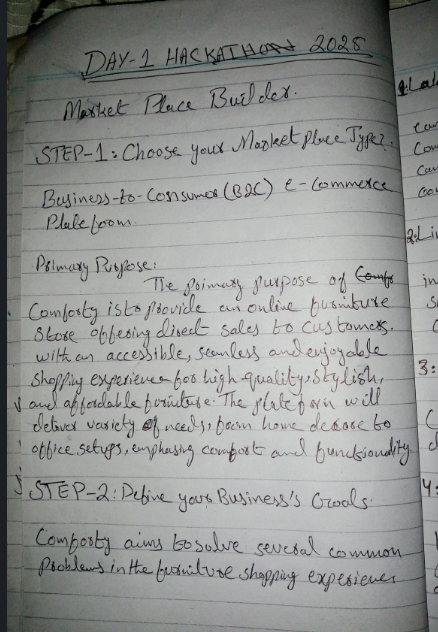 DAY-1 HACKATHON 2025
Market Place Builder.
STEP-1: Choose your Market place Type?
Business-to-Consumer (B2C) e-commerce
Plateform.
Primary Purpose:
The primary purpose of Comfo
Comforty is to provide an online furniture
store offering direct sales to customers.
with an accessible, seamless and enjoyable
shopping experience for high-quality, stylish,
and affordable furniture. The plateform will
deliver variety of needs, from home decore to
office setups, emphasing comfort and functionality
STEP-2: Define your Business's Goals.
Comforty aims to solve several common
problems in the furniture shopping experiences
3: